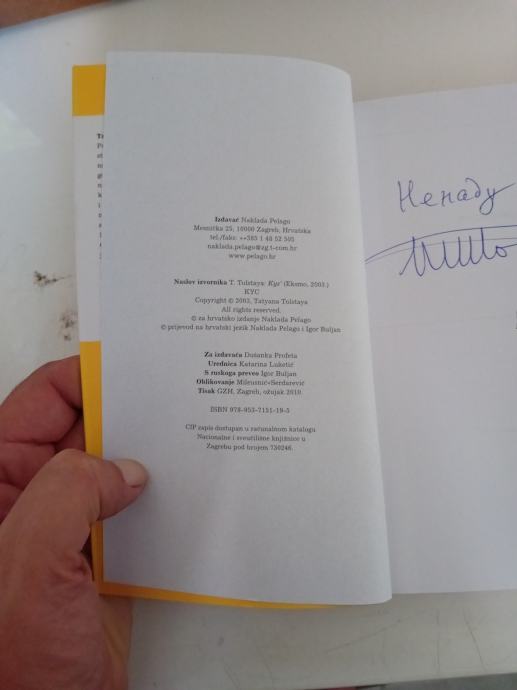 Izdavač Naklada Pelago
Mesnička 25, 10000 Zagreb, Hrvatska
tel./faks: ++385 1 48 52 505
naklada.pelago@zg.t-com.hr
www.pelago.hr
Naslov izvornika T. Tolstaya: Kys' (Eksmo, 2003.)
KYC
Copyright © 2003, Tatyana Tolstaya
All rights reserved.
© za hrvatsko izdanje Naklada Pelago
© prijevod na hrvatski jezik Naklada Pelago i Igor Buljan
Za izdavača Dušanka Profeta
Urednica Katarina Luketić
S ruskoga preveo Igor Buljan
Oblikovanje Mileusnić+Serdarević
Tisak GZH, Zagreb, ožujak 2010.
ISBN 978-953-7151-19-5
CIP zapis dostupan u računalnom katalogu
Nacionalne i sveučilišne knjižnice u
Zagrebu pod brojem 730246.
Ненаду